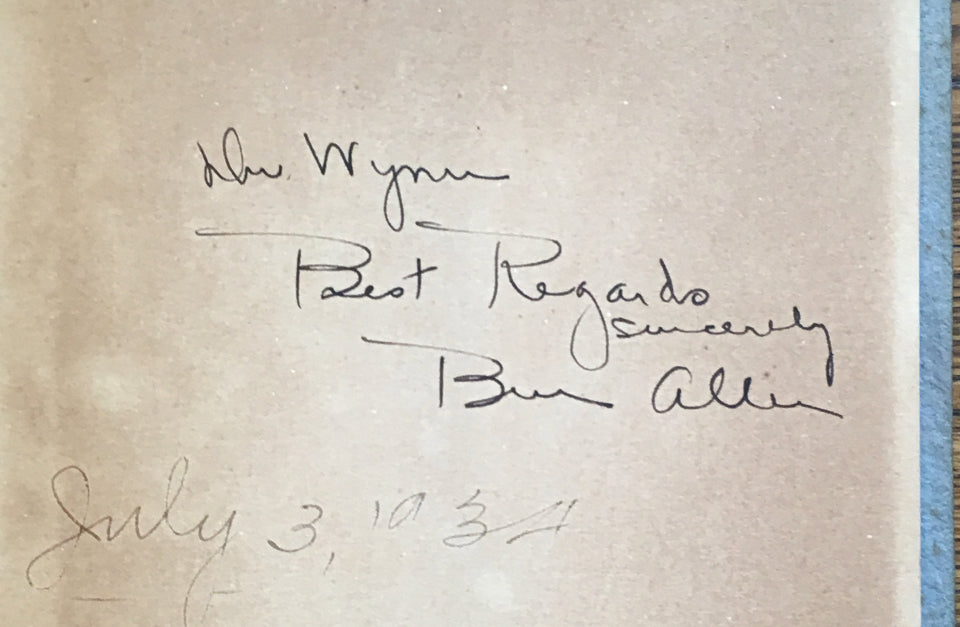 Wynn
Best Regards
sincerely
Ben Allen
July 3, 1934